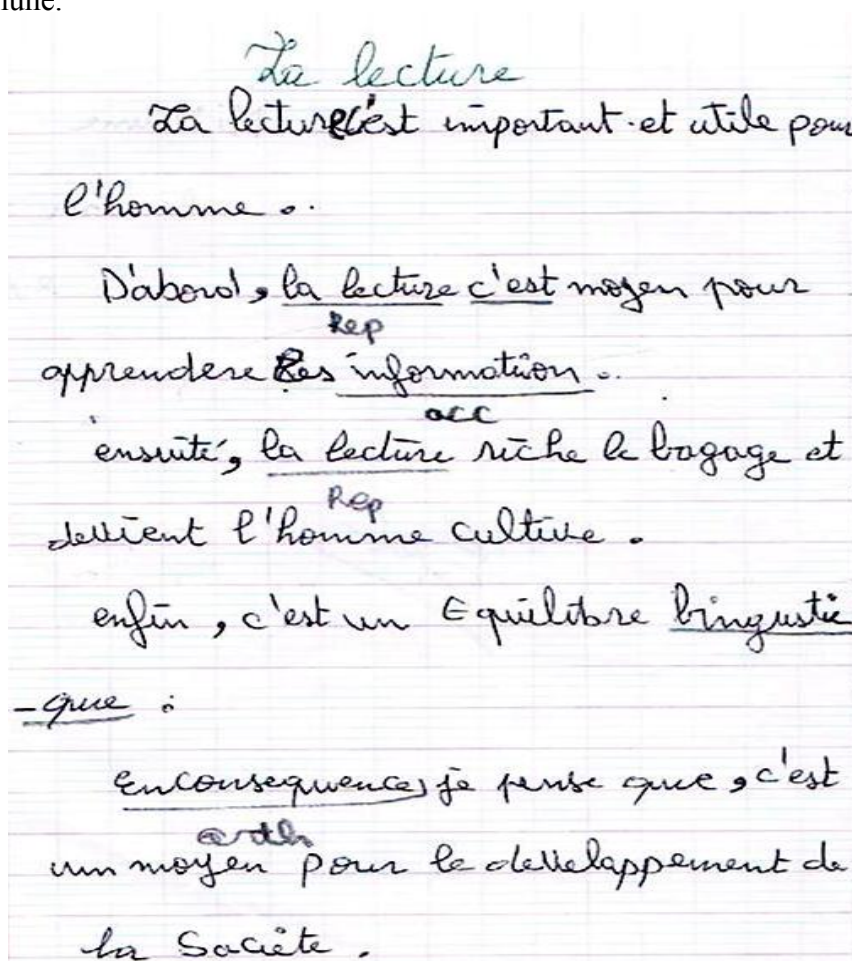 La lecture
La lecture c'est important et utile pour
l'homme.
D'abord, la lecture c'est moyen pour
Rep
apprendere les information.
acc
ensuité, la lecture riche le bagage et
Rep
devient l'homme cultive.
enfin, c'est un Equilibre lingustic
-que :
En consequence, je pense que, c'est
orth
un moyen pour le devellappement de
la Sociète.